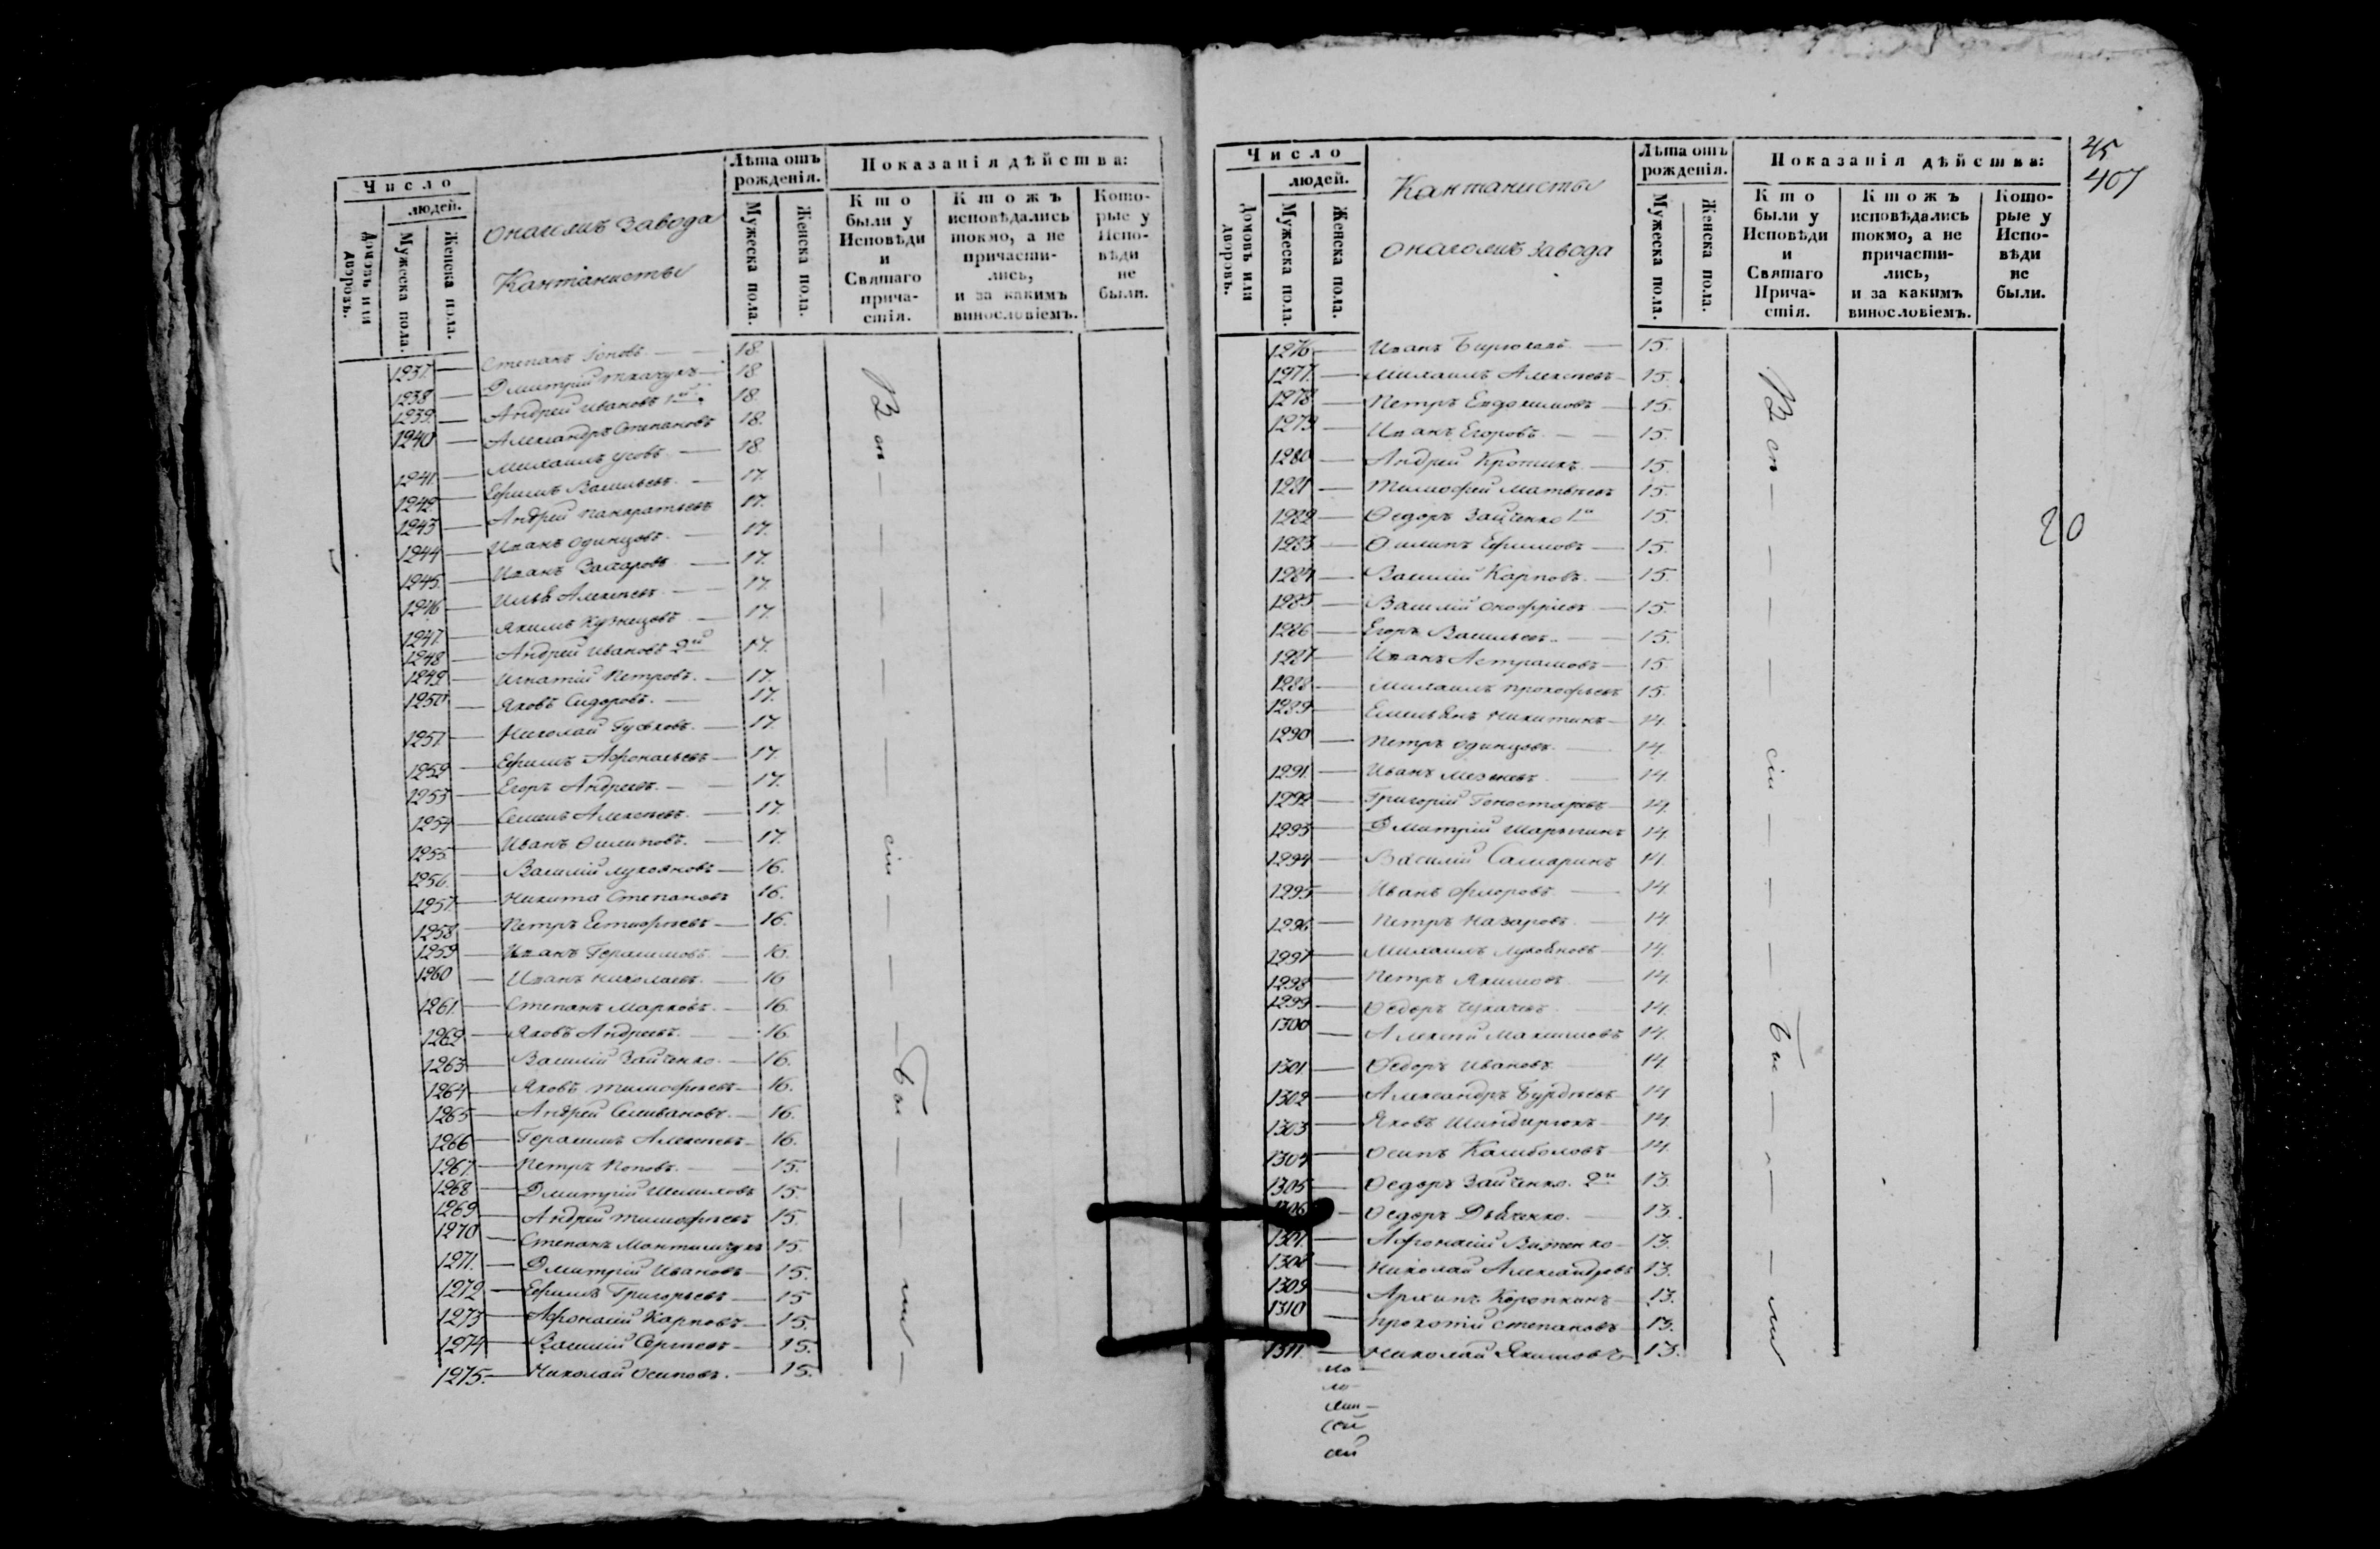 Число
людей.
Домовъ или дворовъ.
Мужеска пола.
Женска пола.
завода
Кантанисты
Лѣта отъ рожденія.
Мужеска пола.
Женска пола.
Показанія дѣйства:
Кто были у Исповѣди и Святаго причастія.
Ктожъ исповѣдались токмо, а не причастились, и за какимъ винословіемъ.
Которые у Исповѣди не были.
1237. — Степанъ — 18.
1238 — Дмитрий Ткачукъ — 18.
1239. — Андрей Ивановъ 1й 18.
1240 — Александръ Степановъ 18.
1241. — Михаилъ Усовъ — 18.
1242. — Ефимъ Васильевъ. — 17.
1243 — Андрей Панкратьевъ 17.
1244 — Иванъ Одинцовъ. — 17.
1245. — Иванъ Захаровъ — 17.
1246 — Илья Алексѣевъ — 17.
1247. — Якимъ Кузнецовъ — 17.
1248 — Андрей Ивановъ 2й 17.
1249. — Игнатій Петровъ. — 17.
1250 — Яковъ Сидоровъ. — 17.
1251. — Николай Гуськовъ. — 17.
1252 — Ефимъ Афонасьевъ — 17.
1253 — Егоръ Андреевъ. — 17.
1254 — Семенъ Алексѣевъ. — 17.
1255. — Иванъ Филиповъ. — 17.
1256. — Василій Лукояновъ — 16.
1257. — Никита Степановъ 16.
1258 — Петръ — 16.
1259 — Иванъ Герасимовъ. — 16.
1260 — Иванъ Николаевъ. — 16
1261. — Степанъ Марковъ. — 16.
1262 — Яковъ Андреевъ. — 16.
1263 — Василій Зайченко. — 16.
1264 — Яковъ Тимофѣевъ — 16.
1265 — Андрей Селивановъ. — 16.
1266 — Герасимъ Алексѣевъ — 16.
1267. — Петръ Поповъ. — 15.
1268 — Дмитрій Шелиховъ 15.
1269 — Андрей Тимофѣевъ 15.
1270 — Степанъ 15.
1271. — Дмитрій Ивановъ — 15.
1272 — Ефимъ Григорьевъ — 15
1273 — Афонасій Карповъ — 15.
1274 — Василій Сергѣевъ — 15.
1275. — Николай Осиповъ. — 15.
Всѣ — сіи — бы — ли —
45
407
Число
людей.
Домовъ или дворовъ.
Мужеска пола.
Женска пола.
Кантанисты
завода
Лѣта отъ рожденія.
Мужеска пола.
Женска пола.
Показанія дѣйства:
Кто были у Исповѣди и Святаго Причастія.
Ктожъ исповѣдались токмо, а не причастились, и за какимъ винословіемъ.
Которые у Исповѣди не были.
1276 — Иванъ Бирюковъ — 15.
1277. — Михаилъ Алексѣевъ — 15.
1278 — Петръ Евдокимовъ — 15.
1279 — Иванъ Егоровъ. — 15.
1280 — Андрей — 15.
1281 — Тимофей Матвѣевъ 15.
1282 — Федоръ Зайченко 1й 15.
1283 — Филипъ Ефимовъ — 15.
1284 — Василій Карповъ. — 15.
1285 — Василій Онофріевъ — 15.
1286 — Егоръ Васильевъ. — 15.
1287 — Иванъ — 15.
1288 — Михаилъ Прокофьевъ 15.
1289 — Емельянъ Никитинъ — 14.
1290 — Петръ Одинцовъ. — 14.
1291. — Иванъ — 14.
1292 — Григорій — 14.
1293 — Дмитрій Шарыгинъ 14.
1294 — Василій Самаринъ 14.
1295 — Иванъ Флоровъ — 14.
1296 — Петръ Назаровъ — 14
1297 — Михаилъ Лукояновъ — 14.
1298 — Петръ Якимовъ — 14.
1299 — Федоръ — 14.
1300 — Алексѣй Максимовъ 14.
1301. — Федоръ Ивановъ — 14.
1302 — Александръ Бурдѣевъ — 14
1303 — Яковъ — 14.
1304 — Осипъ — 14.
1305 — Федоръ Зайченко. 2й 13.
1306 — Федоръ Дьяченко. — 13.
1307. — Афонасій — 13.
1308 — Николай Александровъ 13.
1309 — Архипъ — 13.
1310 — Прокопій Степановъ — 13.
1311. — Николай Якимовъ — 13.
Всѣ — сіи — бы — ли
20